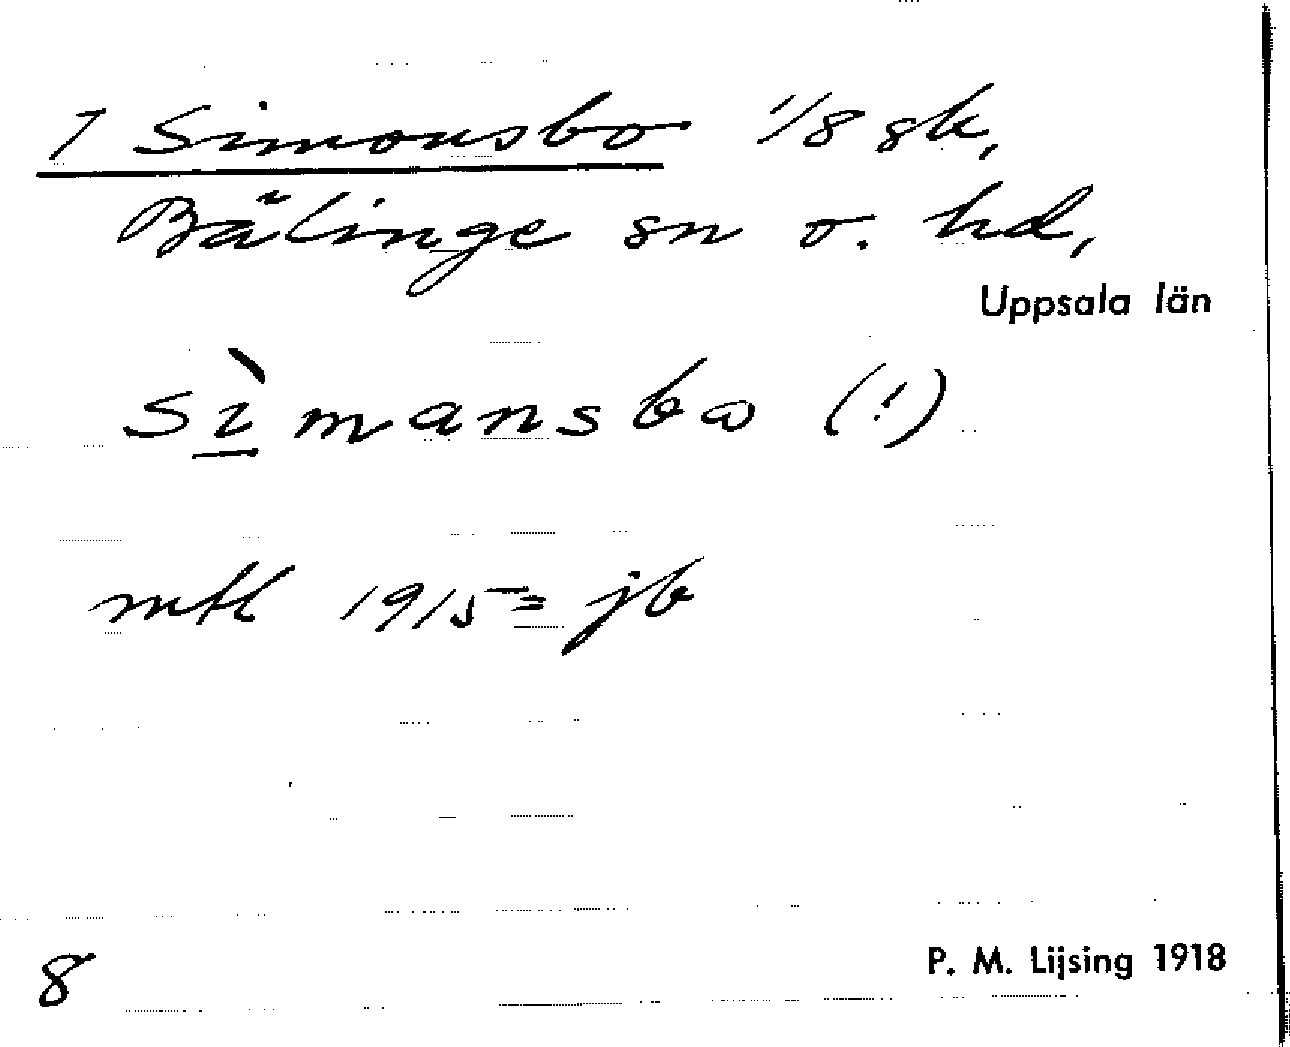 1 Simonsbo 1/8 sk,
Bälinge sn o. hd,
Uppsala län
sìmansbω (!)
mtl 1915 = jb
8
P. M. Lijsing 1918